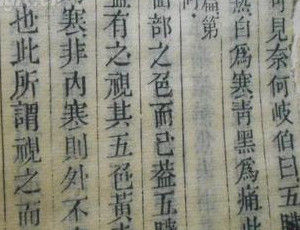 可見奈何岐曰五
熱白為寒青黑為痛此
篇第
面部之色而已蓋五
益有之視其五色黃
寒非內寒則外不
也此所謂視之而